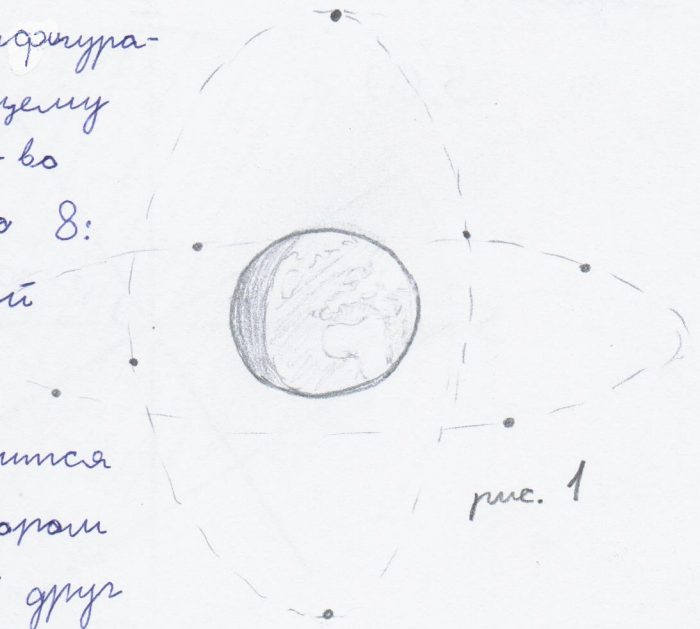 фигура-
щему
-во
о 8:
й
ится
ором
друг
рис. 1